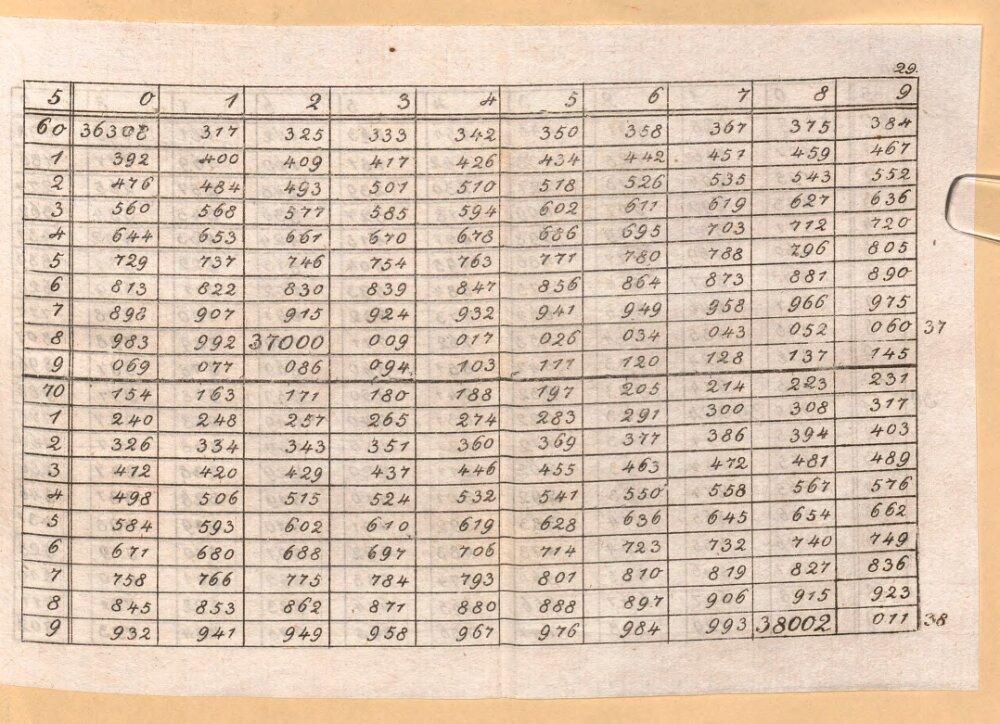 29.
5 0 1 2 3 4 5 6 7 8 9
60 36308 317 325 333 342 350 358 367 375 384
1 392 400 409 417 426 434 442 451 459 467
2 476 484 493 501 510 518 526 535 543 552
3 560 568 577 585 594 602 611 619 627 636
4 644 653 661 670 678 686 695 703 712 720
5 729 737 746 754 763 771 780 788 796 805
6 813 822 830 839 847 856 864 873 881 890
7 898 907 915 924 932 941 949 958 966 975
8 983 992 37000 009 017 026 034 043 052 060 37
9 069 077 086 094 103 111 120 128 137 145
70 154 163 171 180 188 197 205 214 223 231
1 240 248 257 265 274 283 291 300 308 317
2 326 334 343 351 360 369 377 386 394 403
3 412 420 429 437 446 455 463 472 481 489
4 498 506 515 524 532 541 550 558 567 576
5 584 593 602 610 619 628 636 645 654 662
6 671 680 688 697 706 714 723 732 740 749
7 758 766 775 784 793 801 810 819 827 836
8 845 853 862 871 880 888 897 906 915 923
9 932 941 949 958 967 976 984 993 38002 011 38